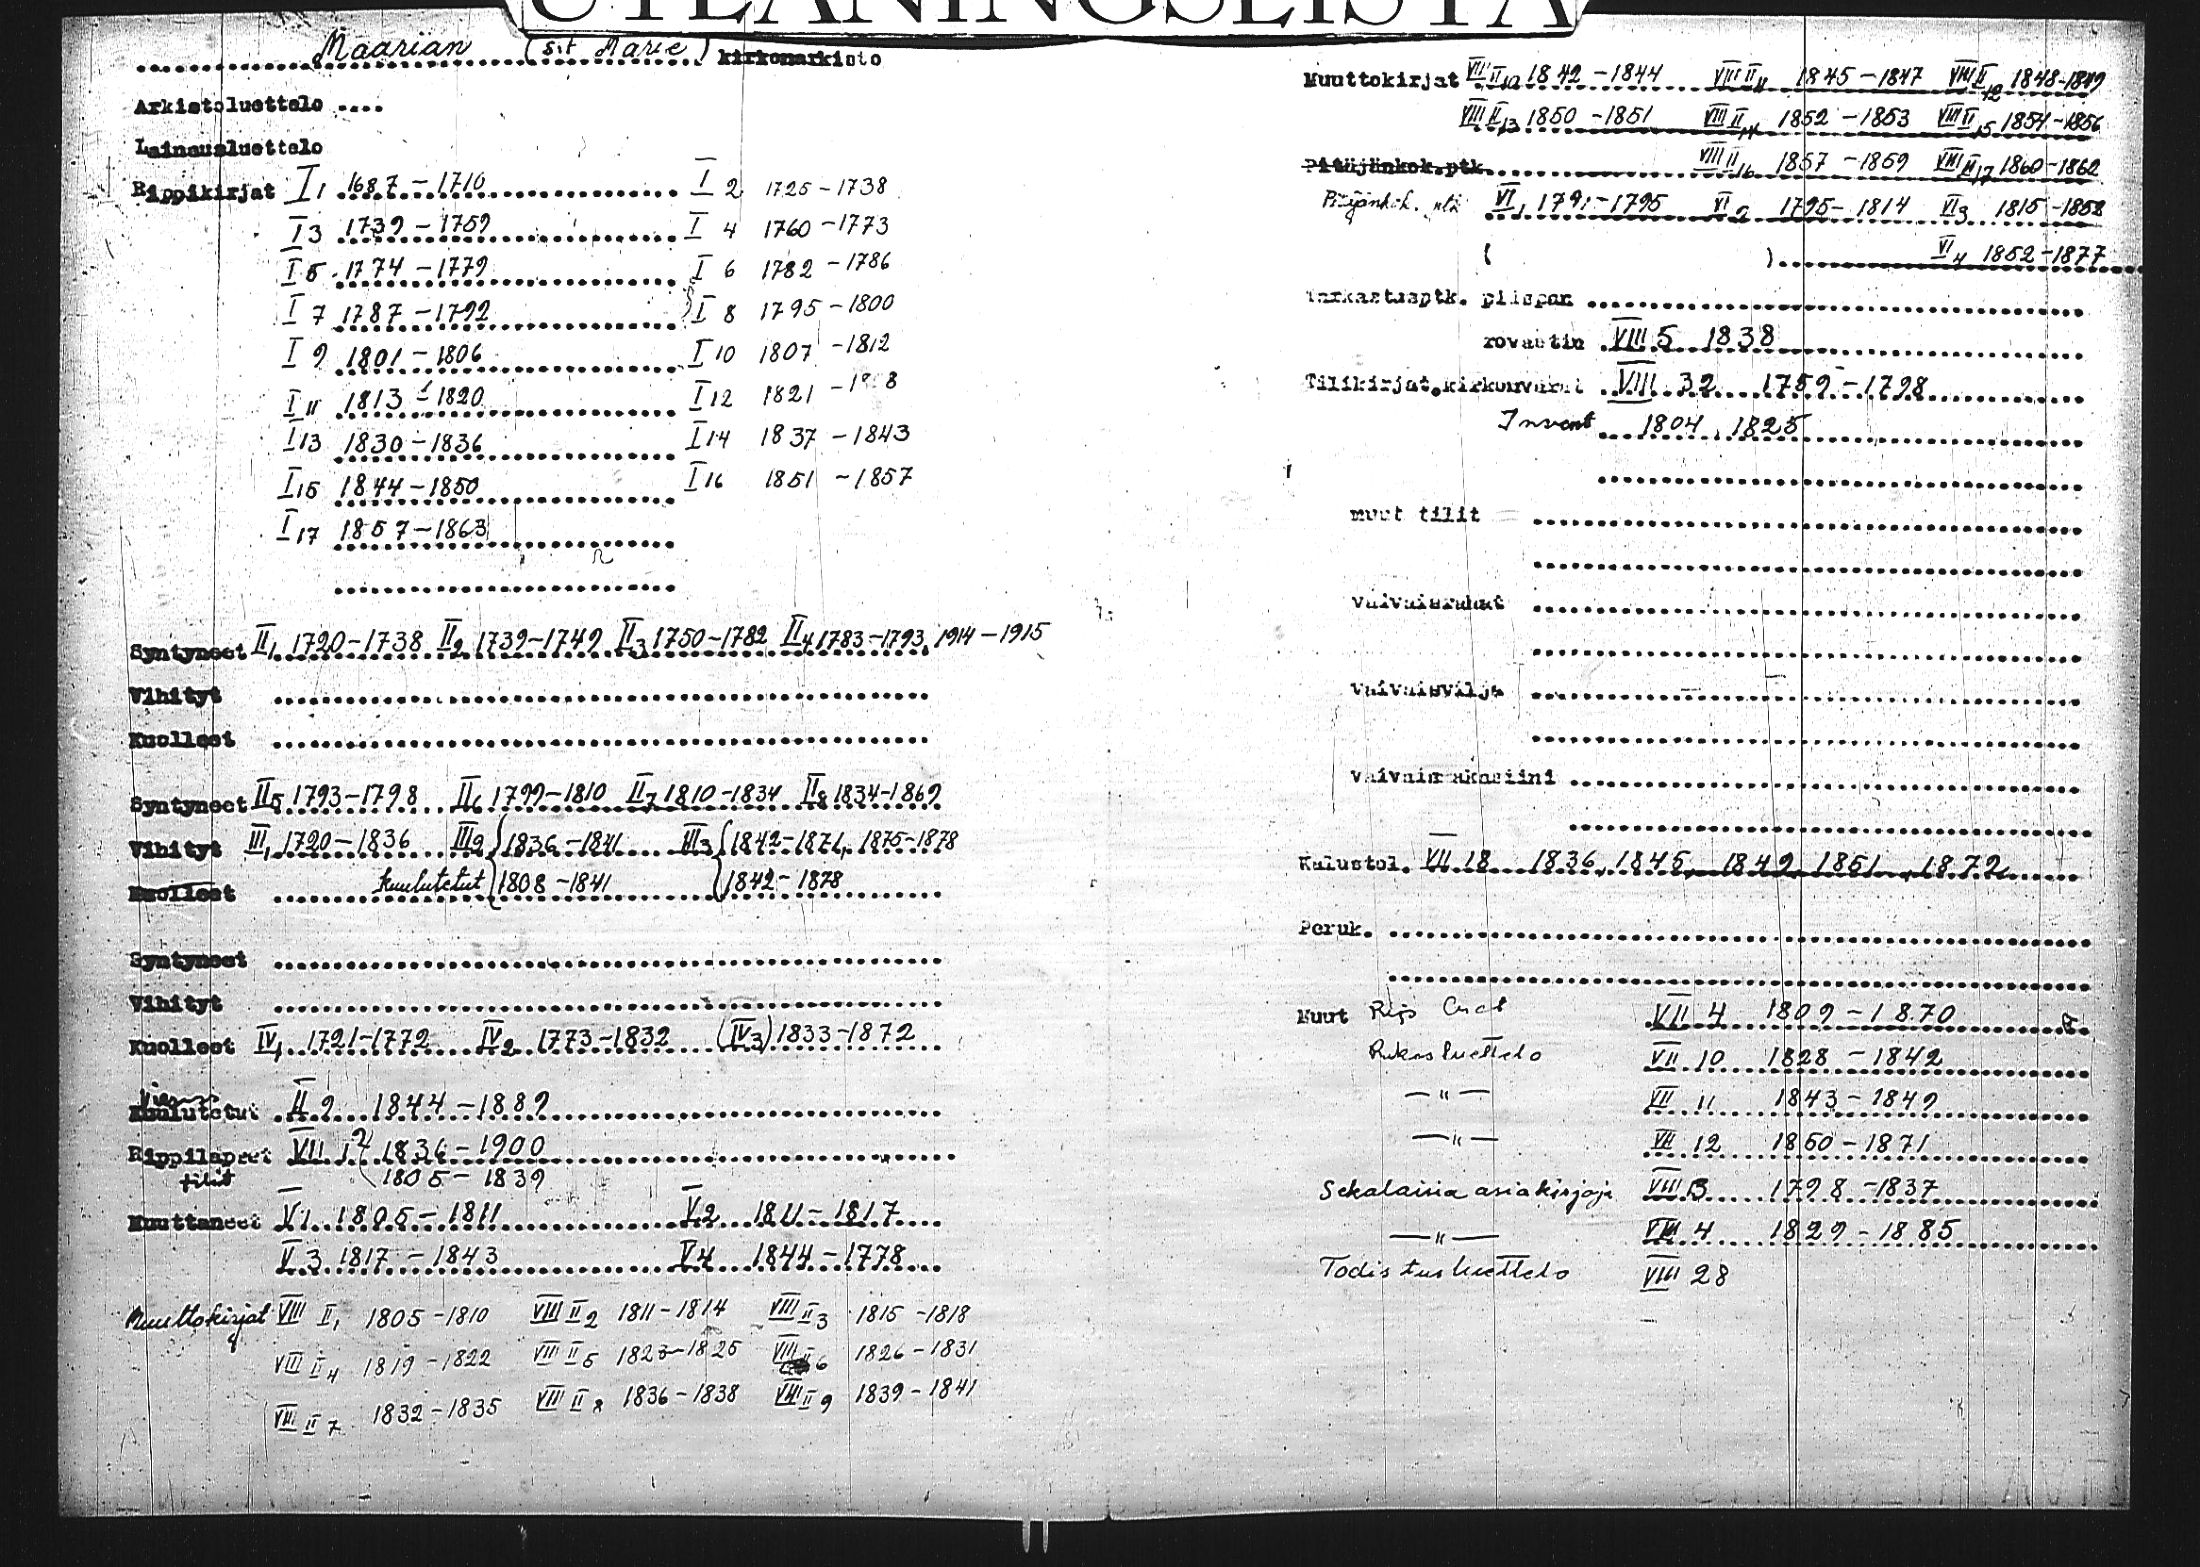 UTLÅNINGSLISTA
Maarian (S:t Marie) kirkonarkisto
Arkistoluettelo ....
Lainausluettelo
Rippikirjat I 1 1687-1710 I 2 1725-1738
I 3 1739-1759 I 4 1760-1773
I 5 1774-1779 I 6 1782-1786
I 7 1787-1792 I 8 1795-1800
I 9 1801-1806 I 10 1807-1812
I 11 1813-1820 I 12 1821-
I 13 1830-1836 I 14 1837-1843
I 15 1844-1850 I 16 1851-1857
I 17 1857-1863
Syntyneet II 1 1720-1738 II 2 1739-1749 II 3 1750-1782 II 4 1783-1793, 1914-1915
Vihityt
Kuolleet
Syntyneet II 5 1793-1798 II 6 1799-1810 II 7 1810-1834 II 8 1834-1869
Vihityt III 1 1720-1836 III 2 1836-1841 III 3 1842-1871, 1875-1878
Kuolleet kuulutetut 1808-1841 1842-1878
Syntyneet
Vihityt
Kuolleet IV 1 1721-1772 IV 2 1773-1832 (IV 3) 1833-1872
Kuulutetut II 9 1844-1889
Rippilapset VII 1 2 1836-1900
tilit 1805-1839
Muuttaneet V 1 1805-1811 V 2 1811-1817
V 3 1817-1843 V 4 1844-1778
Muuttokirjat VIII II 1 1805-1810 VIII II 2 1811-1814 VIII II 3 1815-1818
VIII II 4 1819-1822 VIII II 5 1823-1825 VIII II 6 1826-1831
VIII II 7 1832-1835 VIII II 8 1836-1838 VIII II 9 1839-1841
Muuttokirjat VIII II 10 1842-1844 VIII II 11 1845-1847 VIII II 12 1848-1849
VIII II 13 1850-1851 VIII II 14 1852-1853 VIII II 15 1854-1856
Pitäjänkok.ptk. VIII II 16 1857-1859 VIII II 17 1860-1862
Pitäjänkok. ptk VI 1 1791-1795 VI 2 1795-1814 VI 3 1815-1852
( ) VI 4 1852-1877
Tarkastusptk. piispan
rovastin VIII 5 1838
Tilikirjat, kirkonvarat VIII 32 1759-1798
Invent 1804, 1825
muut tilit
vaivaisrahat
vaivaisvilja
vaivaismakasiini
Kalustol. VII 18 1836, 1845, 1849, 1851, 1872
Peruk.
Muut VII 4 1809-1870
Rokosluettelo VII 10 1828-1842
—"— VII 11 1843-1849
—"— VII 12 1850-1871
Sekalaisia asiakirjoja VIII 3 1798-1837
—"— VIII 4 1829-1885
Todistusluettelo VIII 28